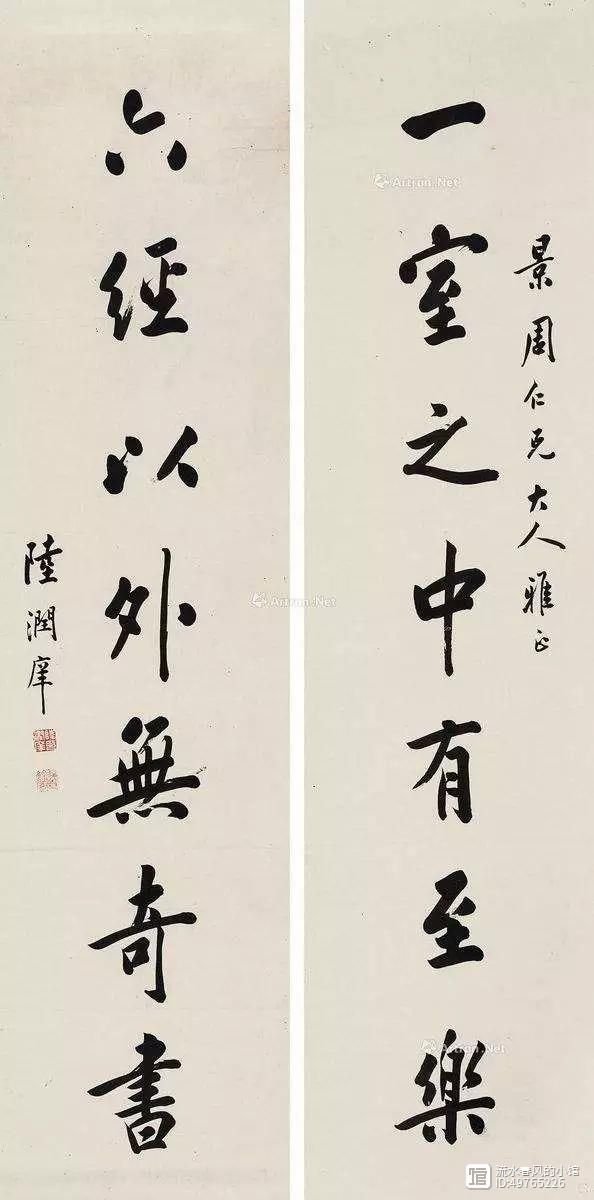 景周仁兄大人雅正
一室之中有至樂
六經以外無奇書
陸潤庠
Artron.Net
Artron.Net
Artron.Net
流水春风的小馆
ID:49765226